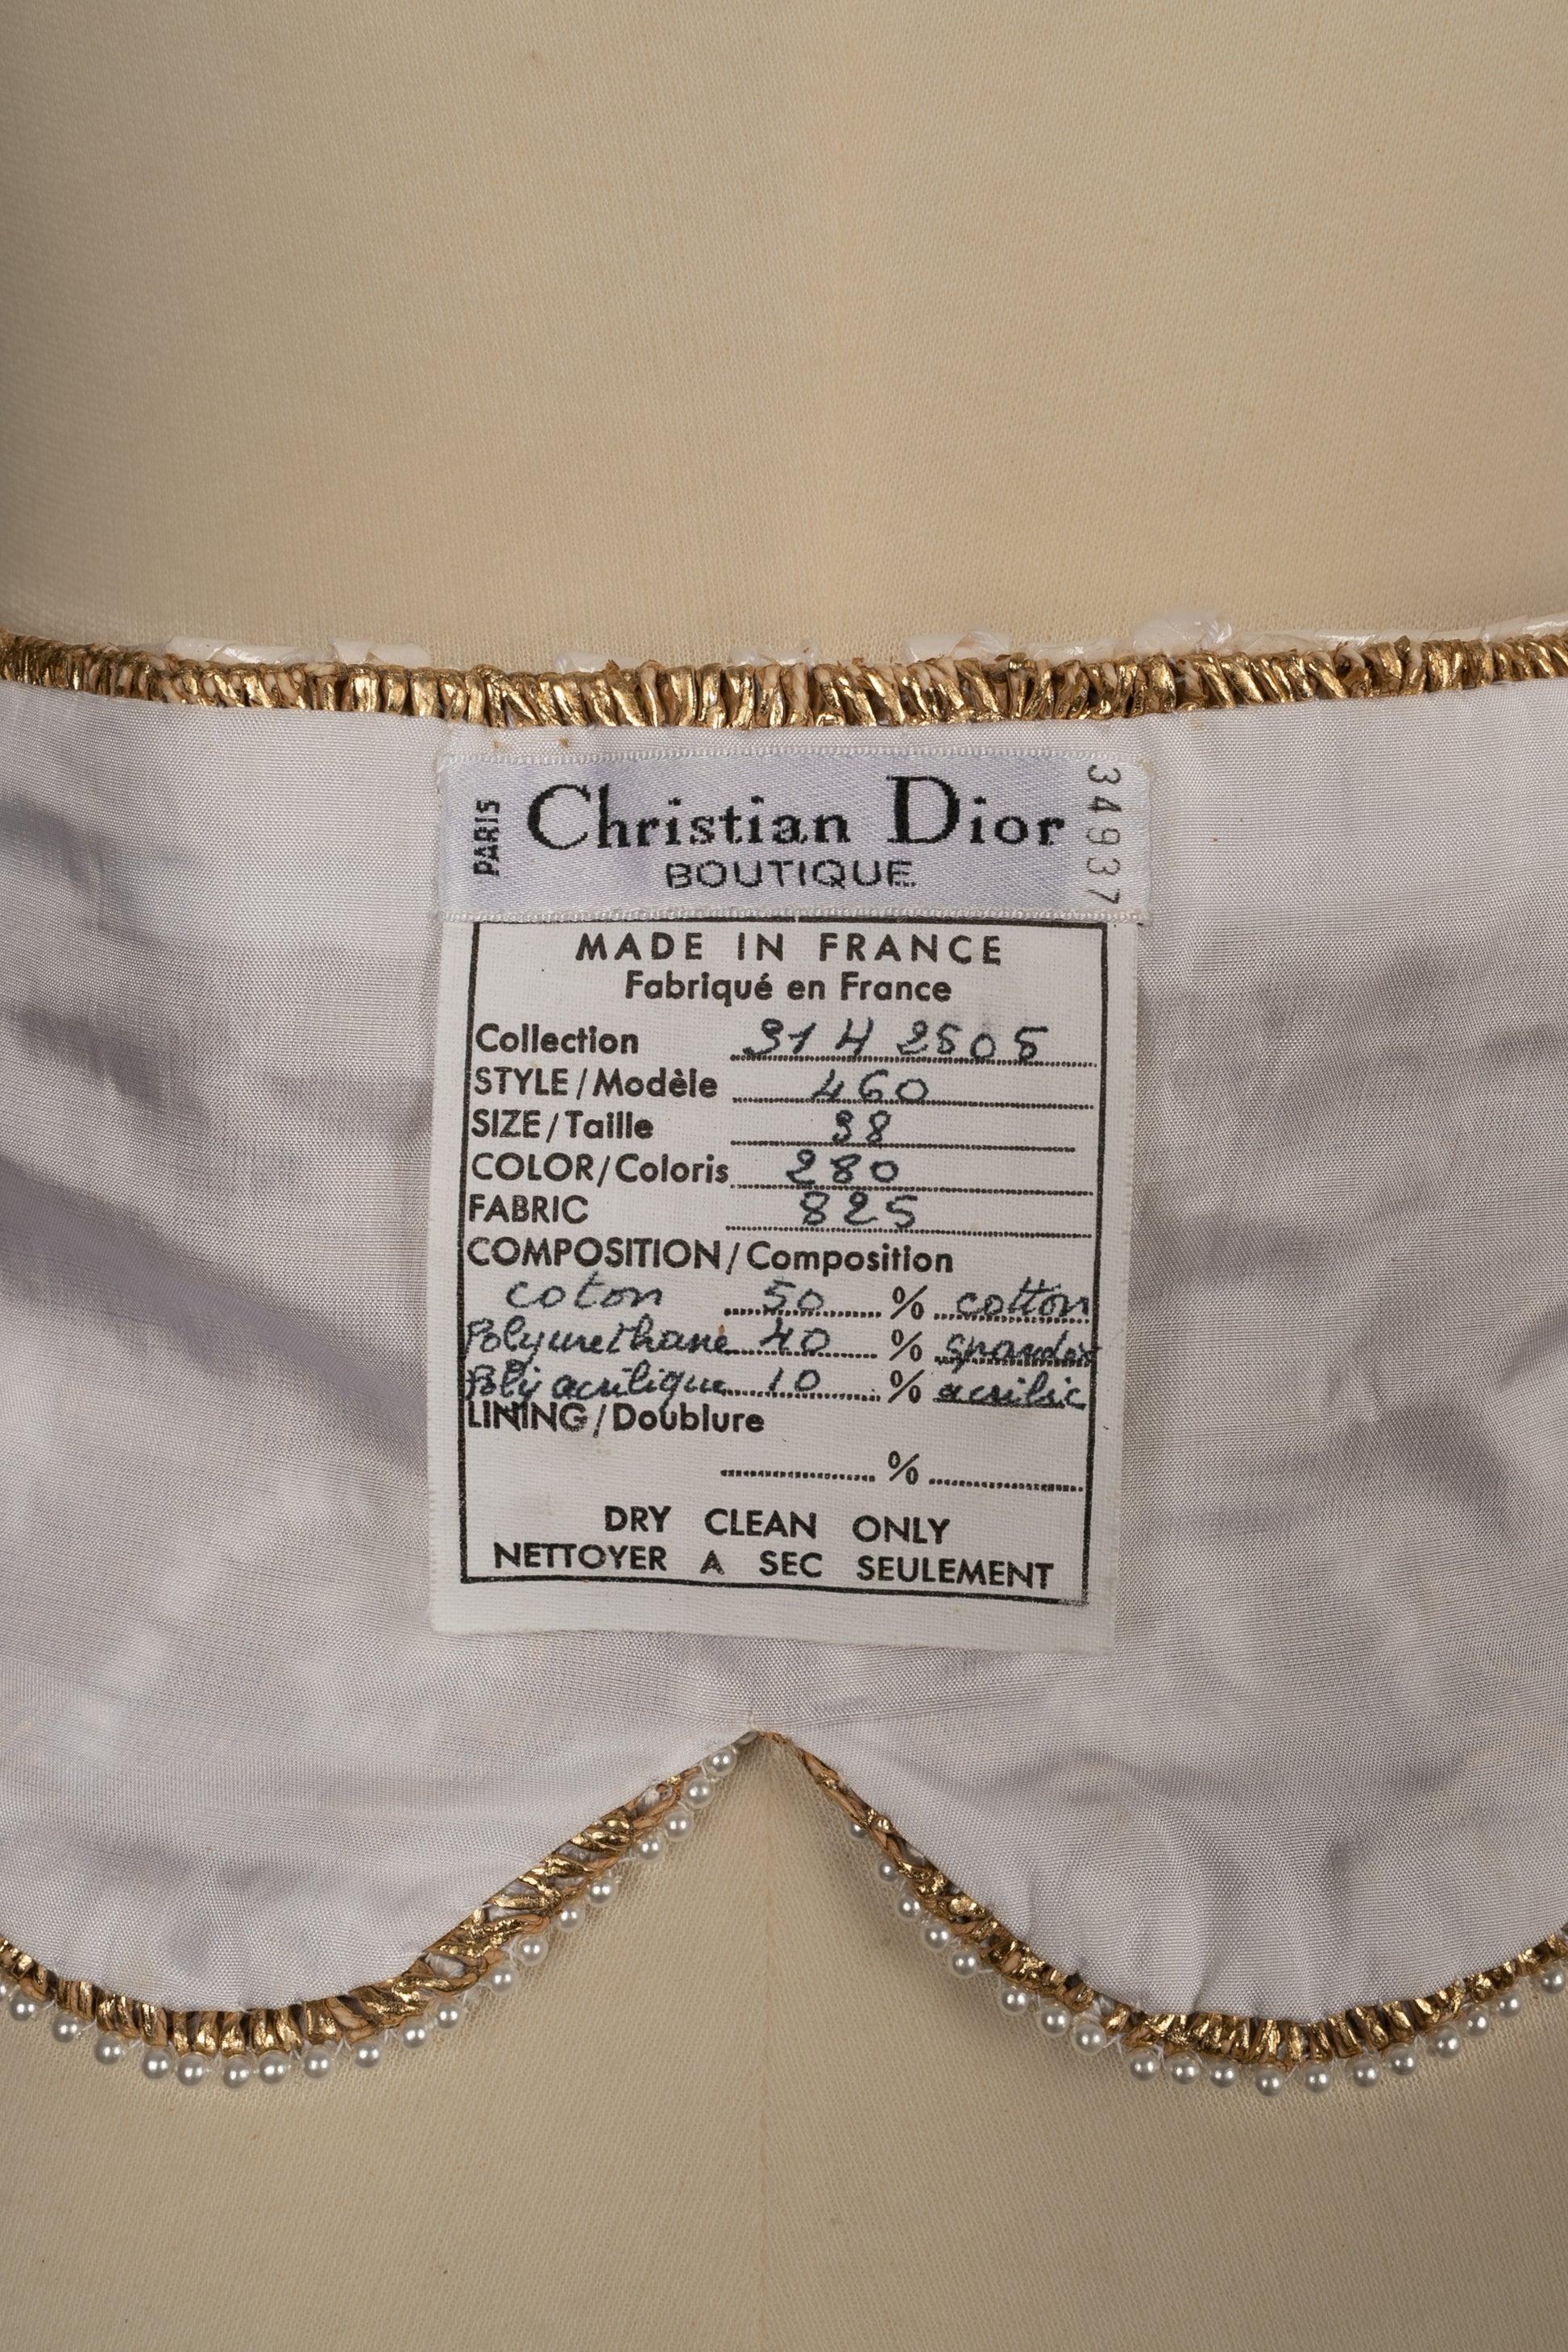 PARIS
Christian Dior
BOUTIQUE
34937
MADE IN FRANCE
Fabriqué en France
Collection 31 H 2505
STYLE/Modèle 460
SIZE/Taille 38
COLOR/Coloris 280
FABRIC 825
COMPOSITION/Composition
coton 50 % cotton
Polyurethane 40 % spandex
Poly acrilique 10 % acrilic
LINING/Doublure
%
DRY CLEAN ONLY
NETTOYER A SEC SEULEMENT